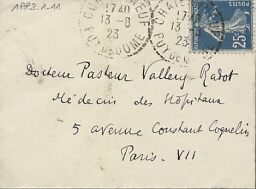 APP3.1.11
17 40
13 - 8
23
PUY DE DOME
17 40
13
23
PUY DE DOME
25c
Docteur Pasteur Vallery-Radot
Médecin des Hôpitaux
5 avenue Constant Coquelin
Paris. VII